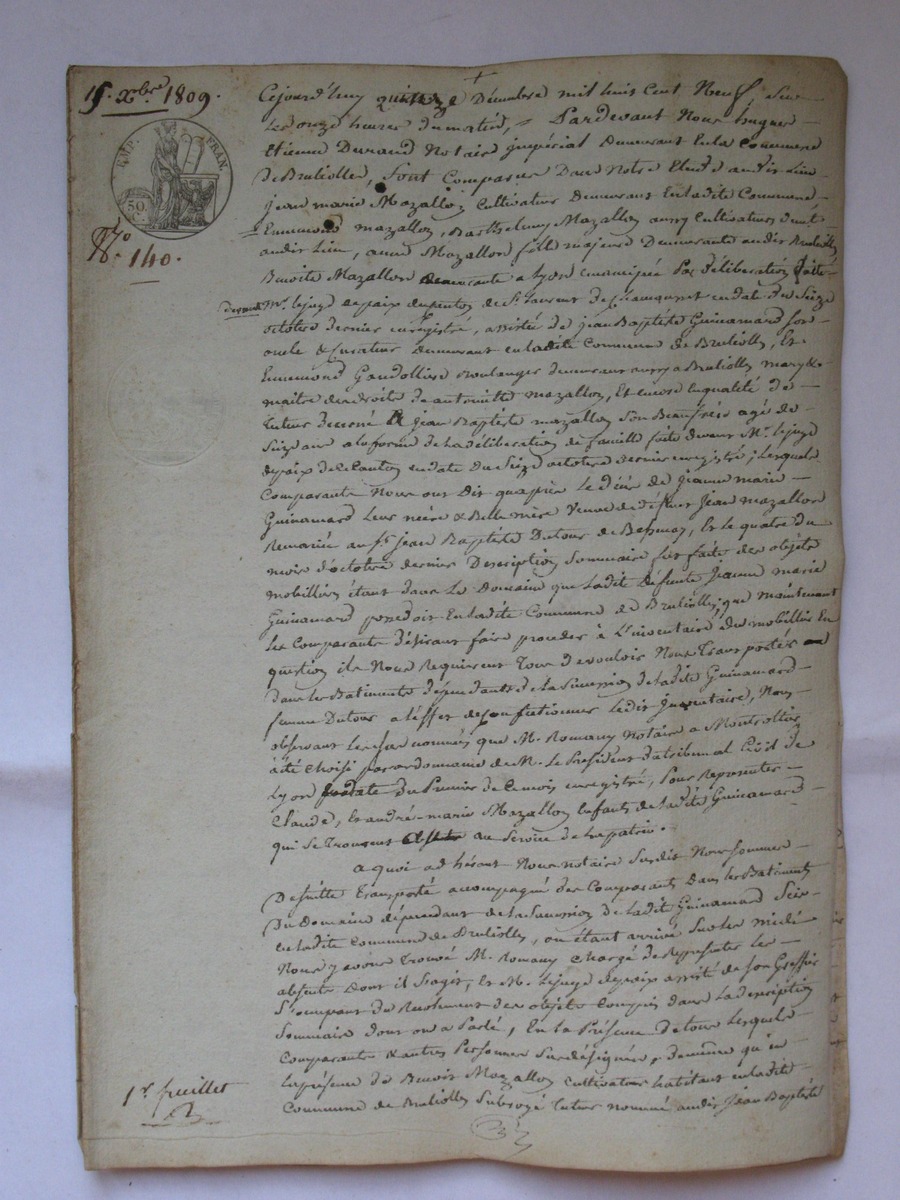 15. Xbre 1809.
EMP. FRAN.
50 C.
No. 140.
Cejourd'huy quinze Décembre mil huit Cent Neuf, Sur
Les onze heures du matin, = Pardevant Nous hugues
Etienne Durand Notaire Impérial Demeurant En la Commune
de Bruliolles, Sont Comparus Dans Notre Etude audit Lieu
jean marie Mazallon Cultivateur Demeurant En ladite Commune
Ennemond Mazallon, Barthelemy Mazallon aussy Cultivateurs
audit Lieu, anne Mazallon fille majeure Demeurante audit Brulioles,
Benoite Mazallon demeurante a Lyon émancipée Par Délibération faite
devant Mr. le juge de paix du canton de St. Laurent de Chamousset en date du Seize
octobre dernier enregistré, assistée de jean Baptiste Guinamard son
oncle & Curateur demeurant en ladite Commune de Brulioles, Et
Ennemond Gaudollier Boulanger demeurant aussy a Brulioles mary &
maitre des droits de antoinette Mazallon, Et encore En qualité de
tuteur décerné A jean Baptiste mazallon Son Beaufrère agé de
Seize ans a la forme de La délibération de famille faite devant Mr. le juge
de paix de ce Canton en date du Seize octobre dernier enregistré; Lesquels
Comparants Nous ont dit qu'après Le décès de jeanne marie
Guinamard Leur mère & Belle mère Veuve de défunt Jean Mazallon
Remariée au Sr. jean Baptiste Dutour de Bessenay, Et le quatre du
mois d'octobre dernier Description Sommaire fut faite des objets
mobilliers étant dans Le Domaine que Ladite Défunte Jeanne marie
Guinamard possedoit En ladite Commune de Brulioles; que maintenant
Les Comparants désirant faire proceder à L'inventaire du mobillier En
question ils Nous Requirent Tous de vouloir Nous Transporter
dans Les Batiments dépendants de La Succession de Ladite Guinamard
femme Dutour a l'effet de confectionner Ledit Inventaire, Nous
observant Les Sus nommés que Mr. Romany Notaire a Montrottier
a été Choisi par ordonnance de Mr. Le Président du tribunal Civil de
Lyon en date du Premier de Ce mois enregistré, Pour Representer
Claude, Et andré-marie Mazallon Enfants de Ladite Guinamard
qui Se Trouvent au Service de La patrie.
a quoi adhérant Nous notaire Susdit Nous Sommes
De Suite Transporté accompagné des Comparants Dans Les Batiments
Du Domaine dépendant de La Succession de Ladite Guinamard Scis
en ladite Commune de Brulioles, ou étant arrivé Sur Les midi
Nous y avons Trouvé Mr. Romany Chargé de Représenter Les
absents dont il S'agit, Et Mr. Le juge de paix assisté de Son Greffier
S'occupant du Recolement des objets Compris dans La description
Sommaire dont on a Parlé, En la Présence Dutour Lesquels
Comparants & autres Personnes Sus désignées, de même qu'en
La présence de Benoit Mazallon Cultivateur habitant en ladite
Commune de Brulioles Subrogé tuteur nommé audit Jean Baptiste
1er feuillet